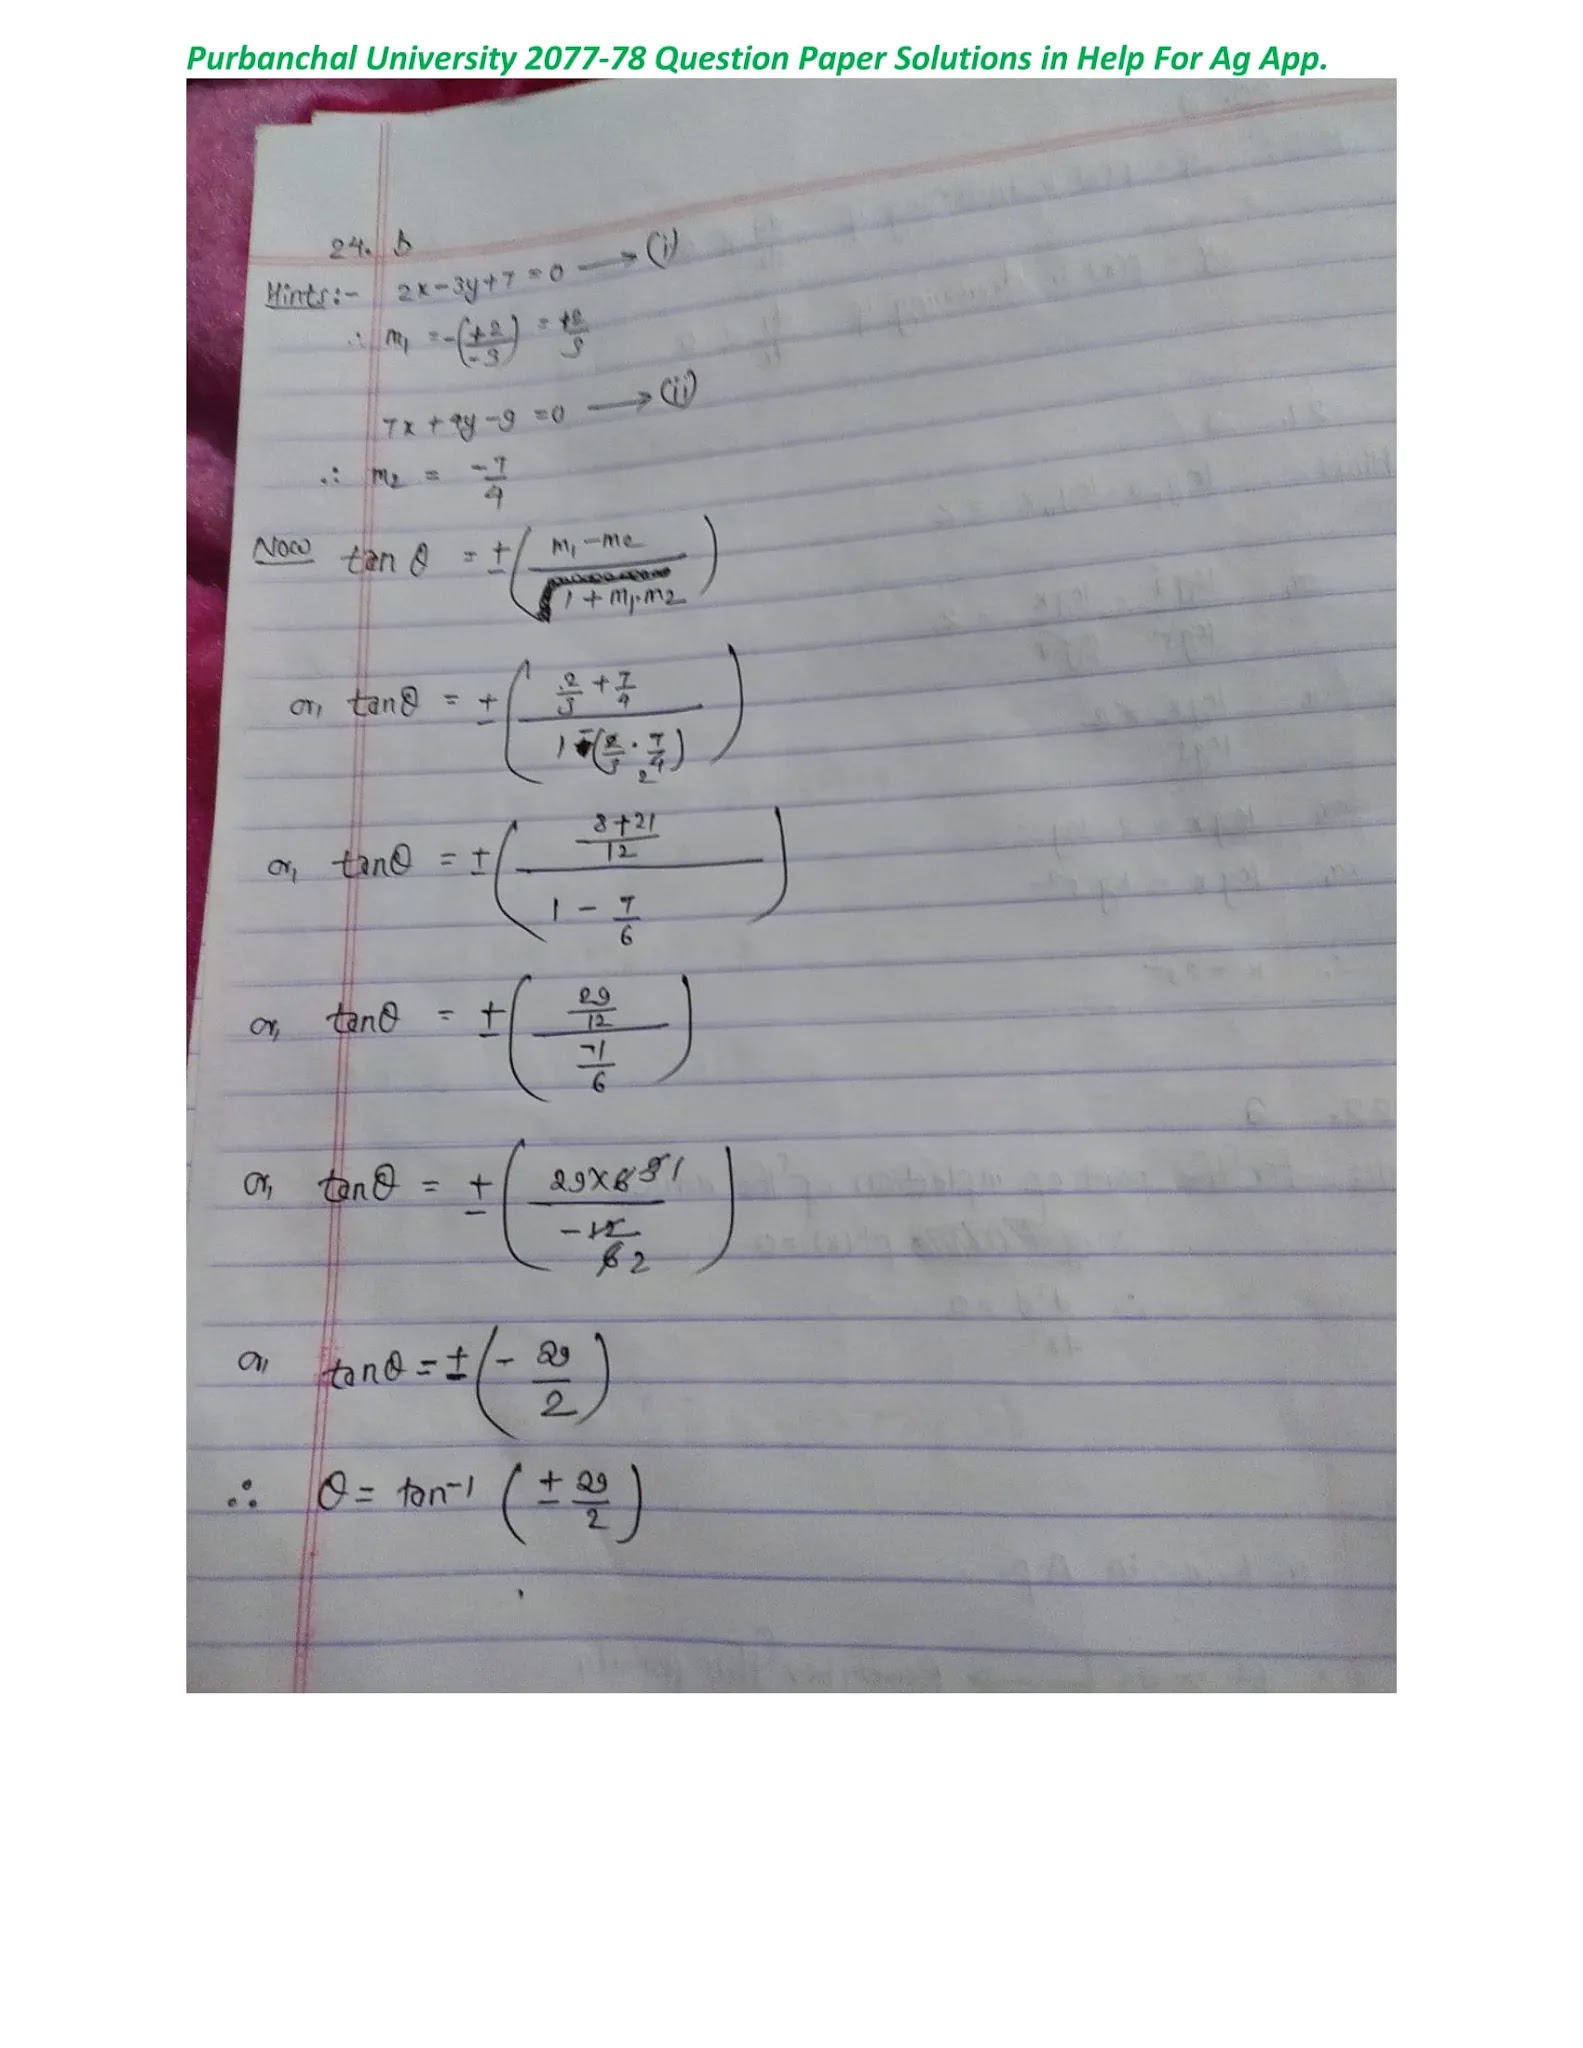 Purbanchal University 2077-78 Question Paper Solutions in Help For Ag App.
24. b
Hints:- 2x-3y+7=0 → (i)
∴ m₁ = -(+2/-3) = +2/3
7x+4y-9=0 → (ii)
∴ m₂ = -7/4
Now tanθ = ±(m₁-m₂ / 1+m₁.m₂)
or, tanθ = ±(2/3 + 7/4 / 1-(2/3 . 7/4 2))
or, tanθ = ±(8+21/12 / 1 - 7/6)
or, tanθ = ±(29/12 / -1/6)
or, tanθ = ±(29×6 / -12 2)
or, tanθ = ±(- 29/2)
∴ θ = tan⁻¹(± 29/2)